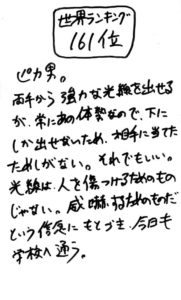 世界ランキング
161位
ピカ男。
両手から強力な光線を出せる
が、常にあの体勢なので、下に
しか出せないため、相手に当てた
ためしがない。それでもいい。
光線は、人を傷つけるためのもの
じゃない。威嚇するためのものだ
という信念にもとづき、今日も
学校へ通う。